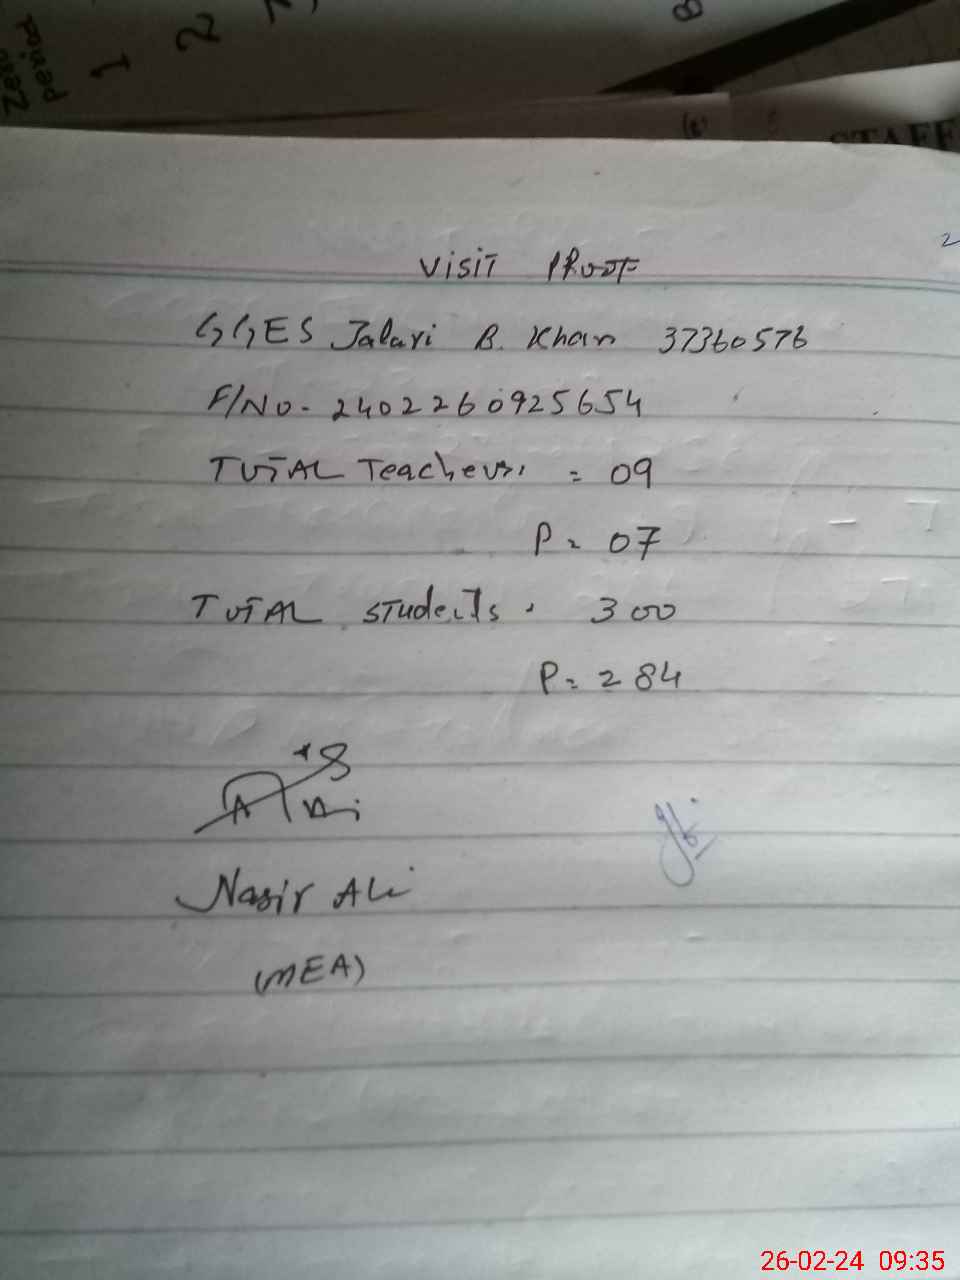 Zero
period
1
2
8
STAFF
2
VISIT PROOF
GGES Jalari B. Khan 37360576
F/No- 2402260925654
TOTAL Teachers. = 09
P = 07
TOTAL students. 300
P = 284
Nasir Ali
(MEA)
26-02-24 09:35